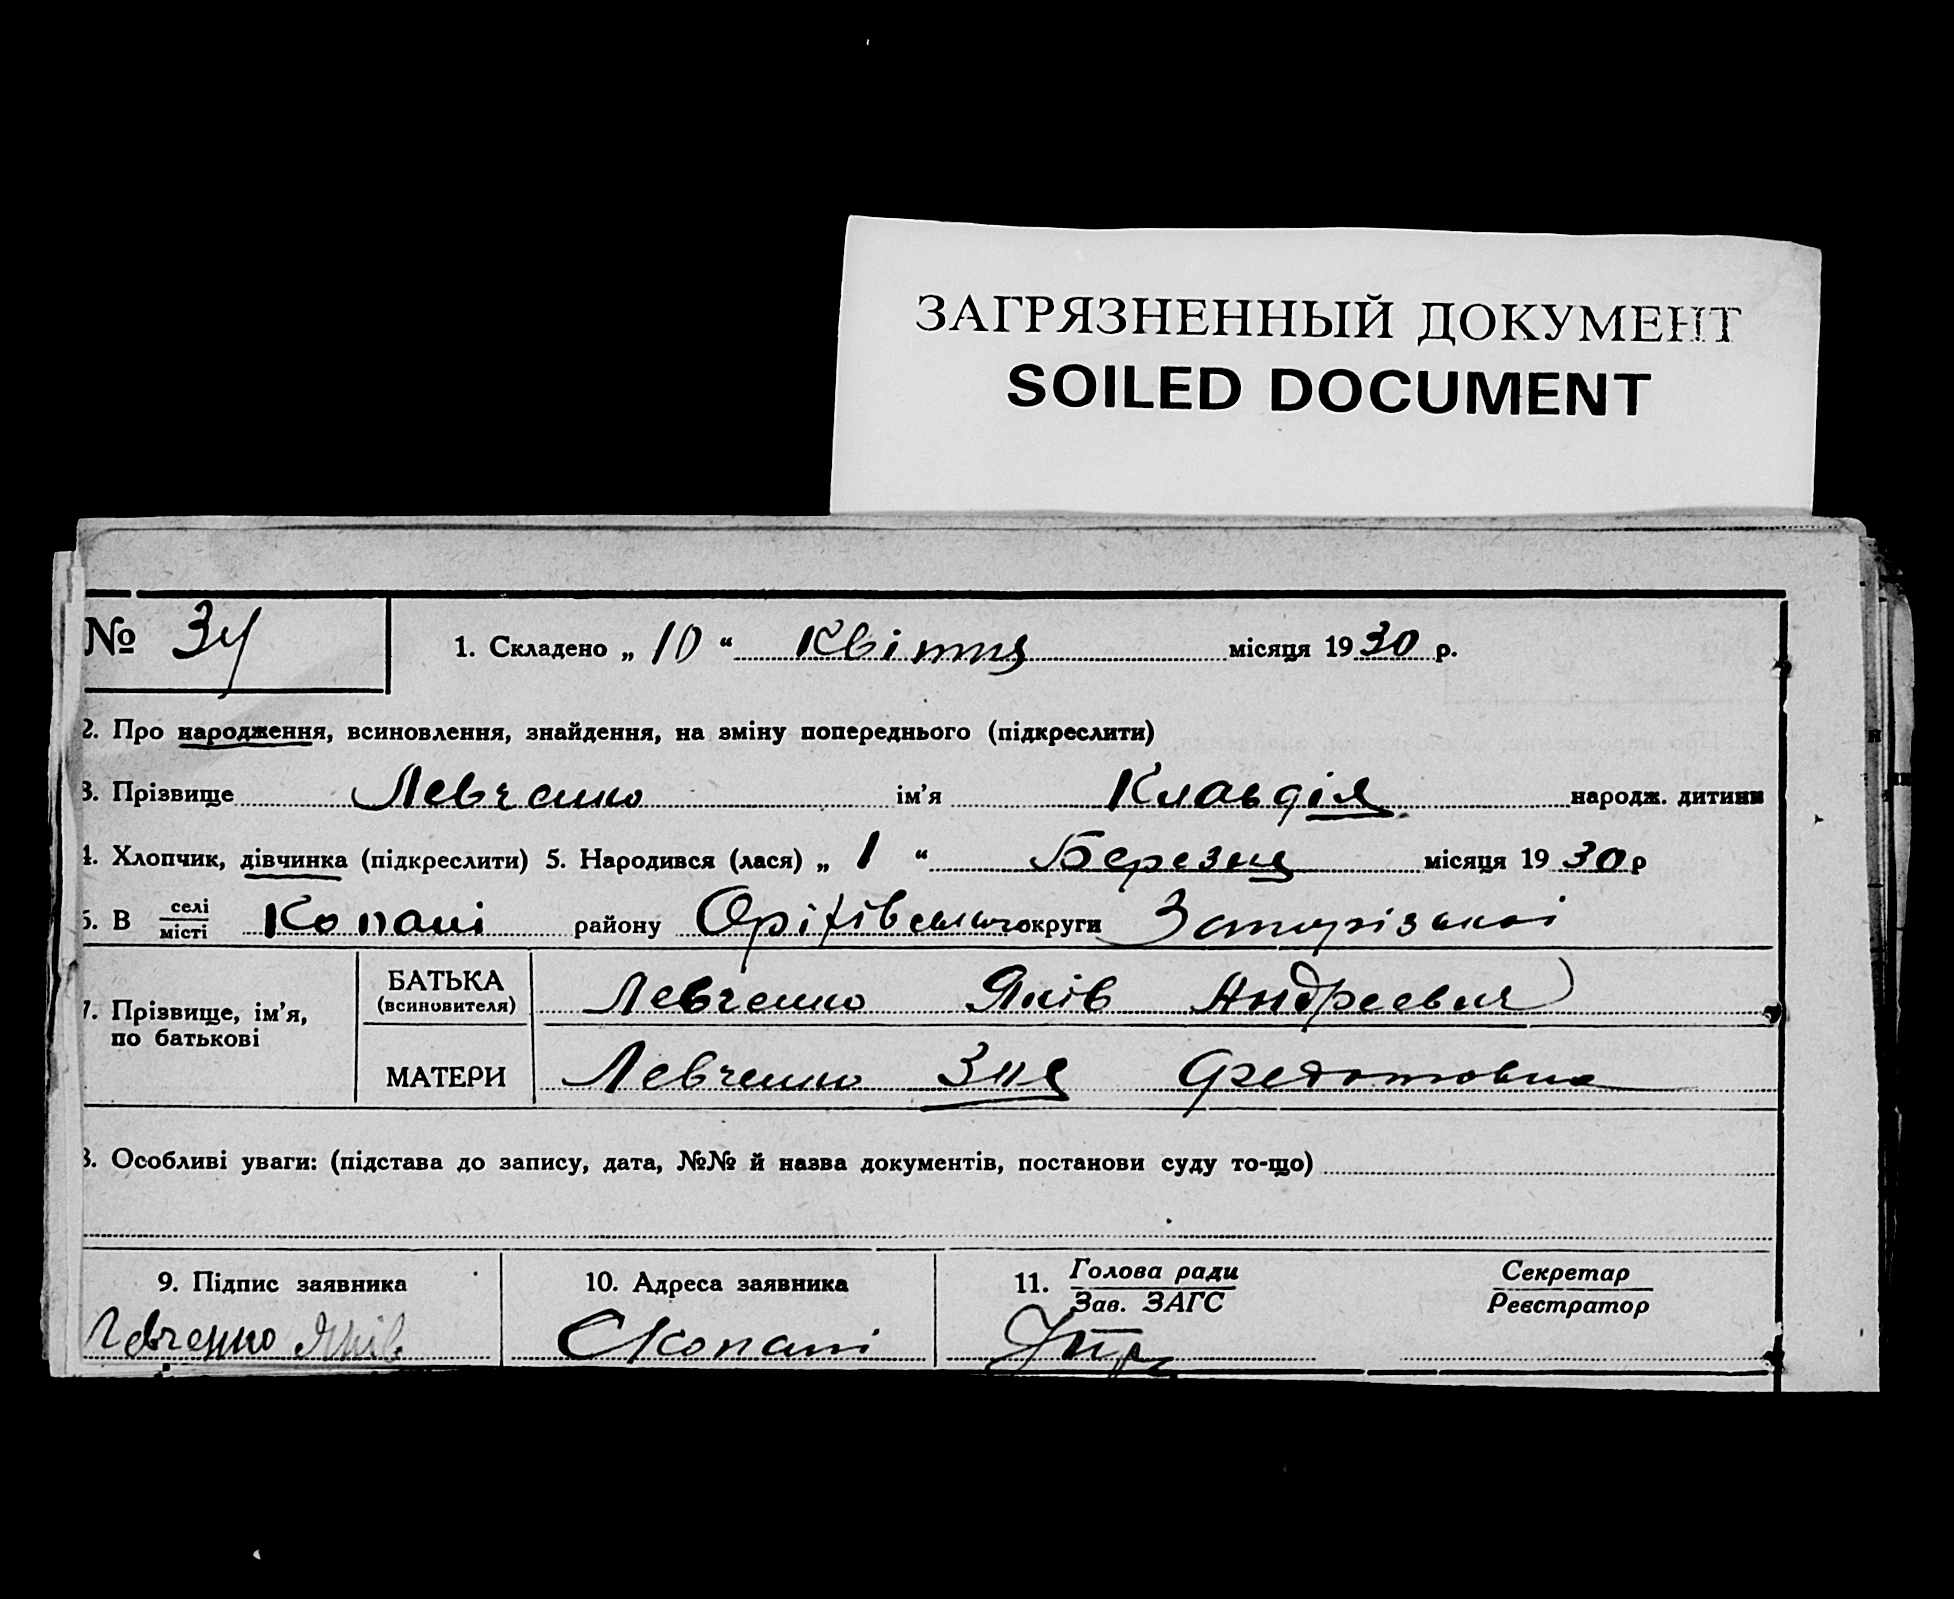 ЗАГРЯЗНЕННЫЙ ДОКУМЕНТ
SOILED DOCUMENT
№ 34
1. Складено „ 10 “ Квітня місяця 1930 р.
2. Про народження, всиновлення, знайдення, на зміну попереднього (підкреслити)
3. Прізвище Левченко ім’я Клавдія народж. дитини
4. Хлопчик, дівчинка (підкреслити) 5. Народився (лася) „ 1 “ Березня місяця 1930 р
6. В селі
місті Копані району Оріхівського округи Запорізької
7. Прізвище, ім’я,
по батькові
БАТЬКА
(всиновителя)
Левченко Яків Андреевич
МАТЕРИ
Левченко Федотовна
8. Особливі уваги: (підстава до запису, дата, №№ й назва документів, постанови суду то-що)
9. Підпис заявника
Левченко Яків
10. Адреса заявника
С Копані
11. Голова ради
Зав. ЗАГС
Секретар
Реєстратор